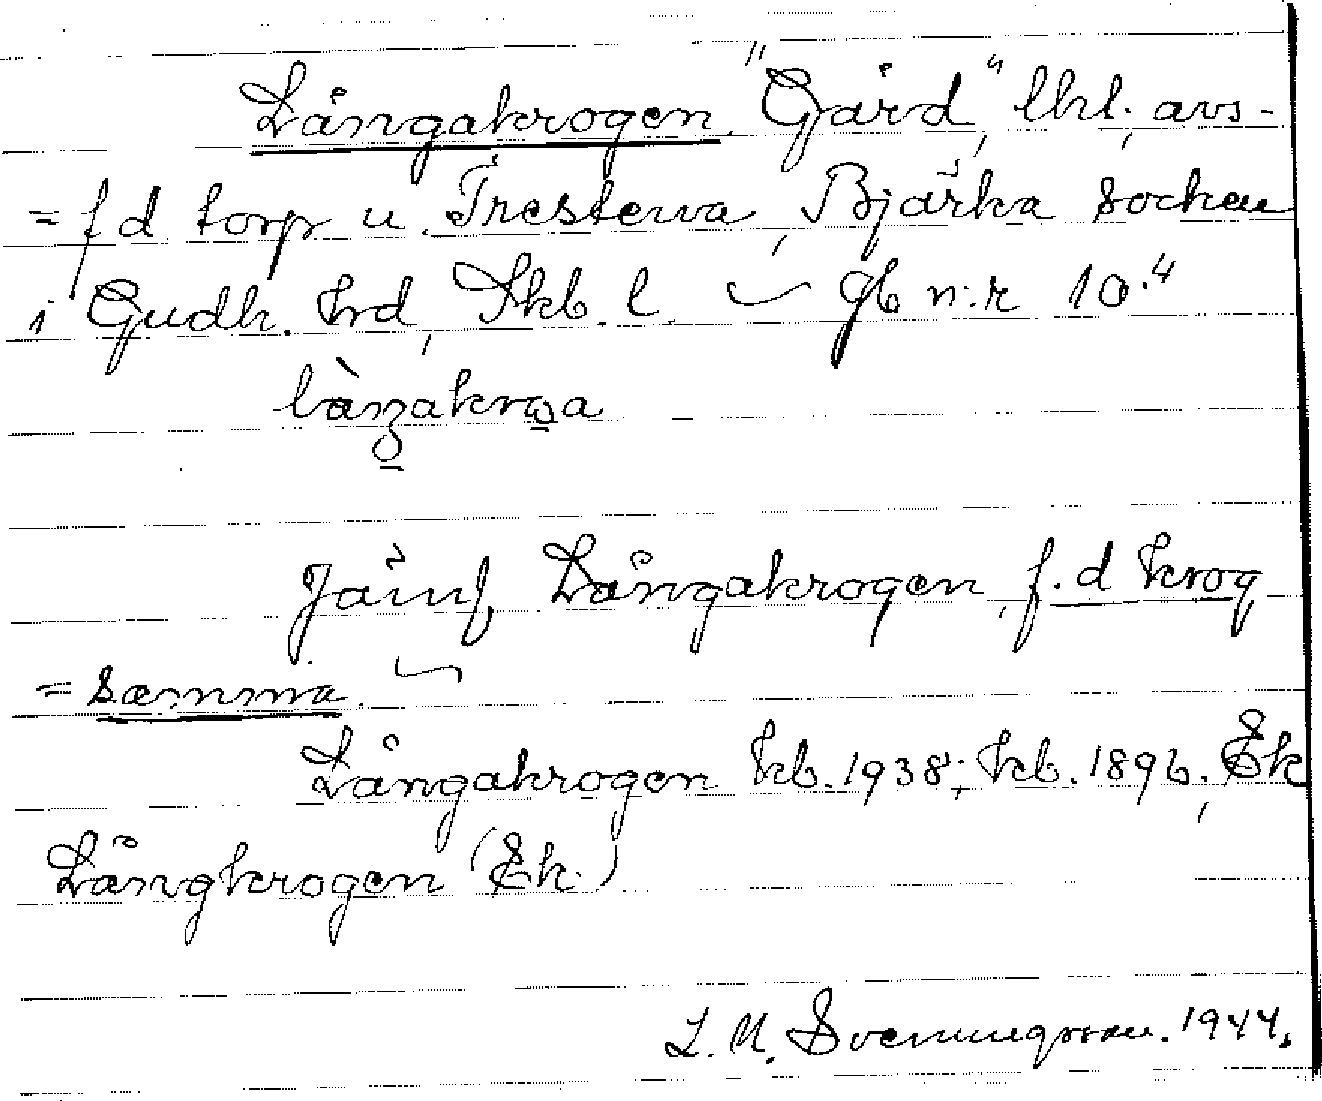 Långakrogen "Gård", lht. avs-
= f d torp u. Trestena, Bjärka socken
i Gudh. hrd, Skb. l. gb n:r 10.4
làŋakroa
Jämf. Långakrogen, f.d krog
= samma.
Långakrogen kb. 1938; kb. 1896; Ek
Långkrogen (Ek)
L. M. Svenungsson. 1944.